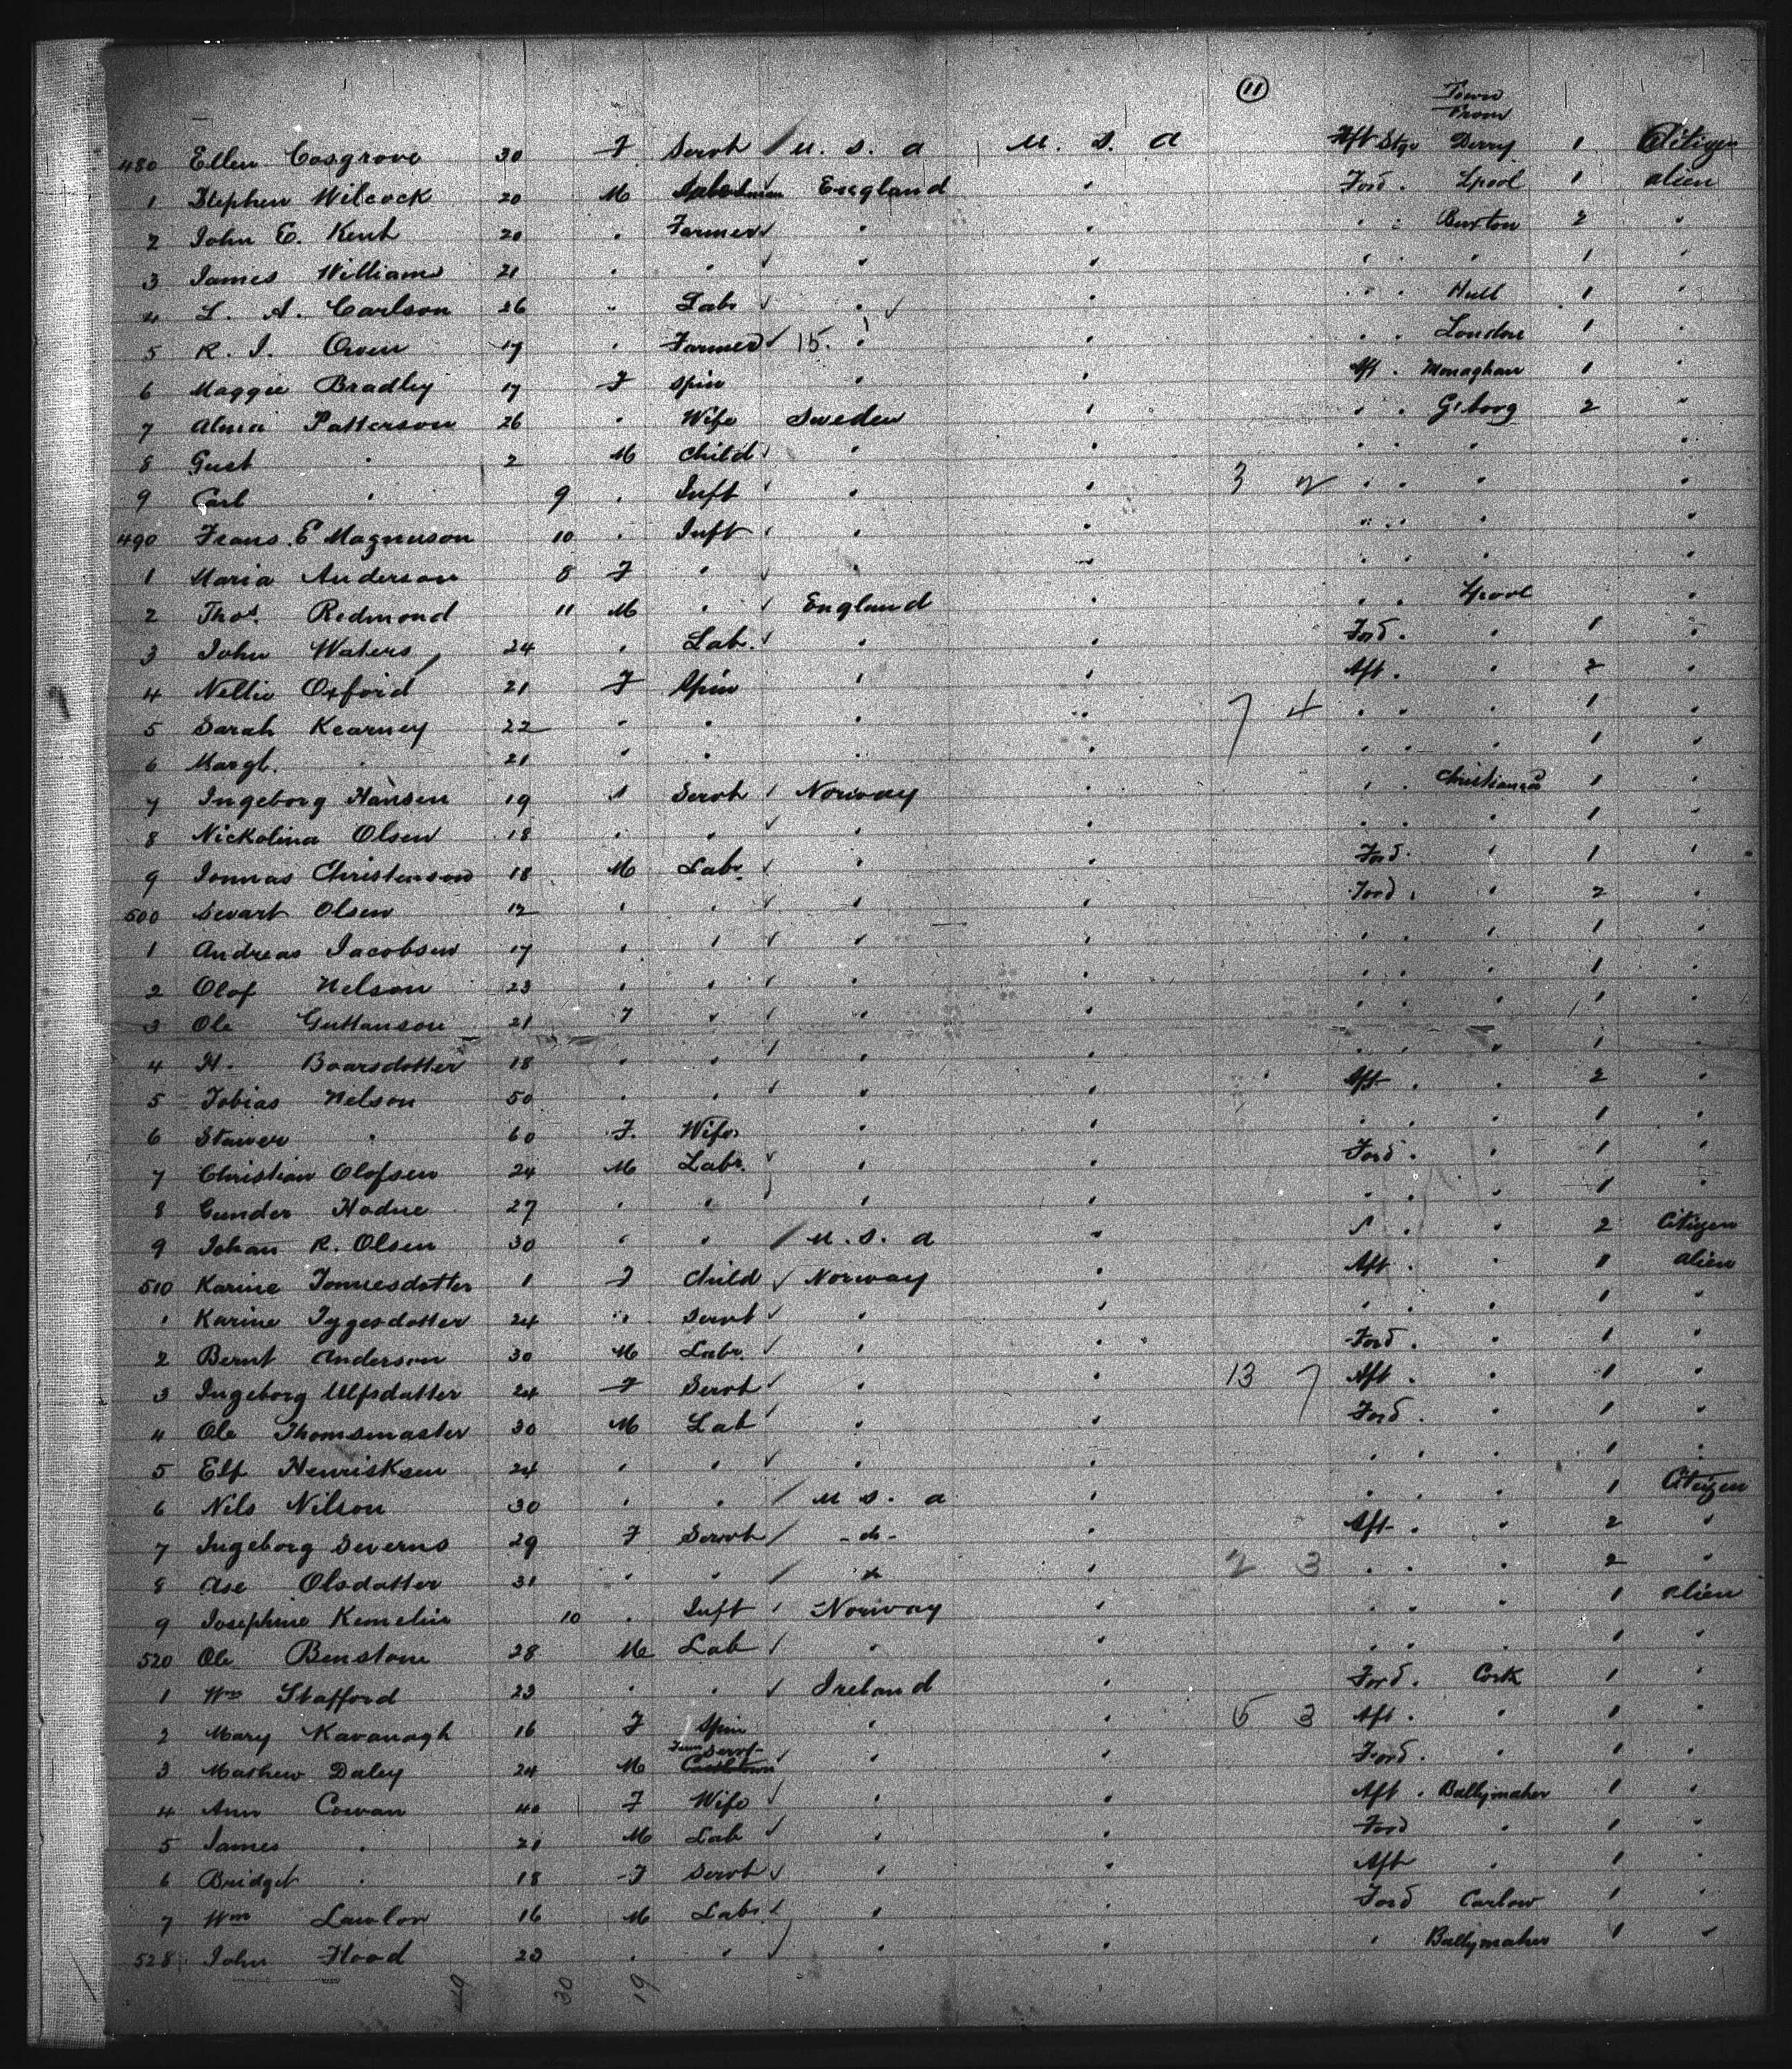 11
Town
From
480 Ellen Cosgrove 30 F Servt / U. S. A U. S. A Aft Stge Derry 1 Citizen
1 Stephen Wilcock 20 M England " Ford . Lpool 1 Alien
2 John E. Kent 20 " Farmer √ " " " " Burton 2 "
3 James Williams 21 " " √ " " " " " 1 "
4 L. A. Carlson 26 " Labr √ " √ " " " Hull 1 "
5 R. J. Owen 17 " Farmer √ 15. " " " " London 1 "
6 Maggie Bradley 17 F Spin " " Aft . Monaghan 1 "
7 Alma Patterson 26 " Wife Sweden " " " Gtborg 2 "
8 Gust " 2 M Child √ " " " " " "
9 Carl " 9 " Inft √ " " 3 2 " " " "
490 Frans. E Magnuson 10 " Inft √ " " " " " "
1 Maria Anderson 8 F " √ " " " " " "
2 Thos. Redmond 11 M " √ England " " " Lpool "
3 John Waters 24 " Lab. √ " " Ford . " 1 "
4 Nellie Oxford 21 F Spin " " Aft . " 2 "
5 Sarah Kearney 22 " " " " 7 4 " " " 1 "
6 Margt. " 21 " " " " " " " 1 "
7 Ingeborg Hansen 19 " Servt √ Norway " " " Christiansd 1 "
8 Nickolina Olsen 18 " " √ " " " " " 1 "
9 Jonnas Christenson 18 M Labr. √ " " Ford . " 1 "
500 Sevart Olsen 12 " " √ " " Ford . " 2 "
1 Andreas Jacobsen 17 " " √ " " " " " 1 "
2 Olof Nelson 23 " " √ " " " " " 1 "
3 Ole Guttanson 21 " " √ " " " " " 1 "
4 H. Baarsdotter 18 " " √ " " " " " 1 "
5 Tobias Nelson 50 " " √ " " Aft . " 2 "
6 Stawer " 60 F. Wife " " " " " 1 "
7 Christian Olofsen 24 M Labr. √ " " Ford . " 1 "
8 Gunder Hodne 27 " " √ " " " " " 1 "
9 Johan R. Olsen 30 " " / U. S. A " " " " 2 Citizen
510 Karine Tonnesdotter 1 F Child √ Norway " Aft . " 1 Alien
1 Karine Tygesdotter 24 " Servt √ " " " " " 1 "
2 Bernt Anderson 30 M Labr. √ " " Ford . " 1 "
3 Ingeborg Ulfsdatter 24 F Servt √ " " 13 7 Aft . " 1 "
4 Ole Thomsmaster 30 M Lab √ " " Ford . " 1 "
5 Elf Henriksen 24 " " √ " " " " " 1 "
6 Nils Nilson 30 " " / U. S. A " " " " 1 Citizen
7 Ingeborg Severns 29 F Servt / -do- " Aft . " 2 "
8 Ase Olsdatter 31 " " / " " 2 3 " " " 2 "
9 Josephine 10 " Inft √ Norway " " " " 1 Alien
520 Ole Benstone 28 M Lab √ " " " " " 1 "
1 Wm Stafford 23 " " √ Ireland " Ford . Cork 1 "
2 Mary Kavanagh 16 F Spin " " 5 3 Aft . " 1 "
3 Mathew Daley 24 M Farm Servt Castletown √ " " Ford . " 1 "
4 Ann Cowan 40 F Wife √ " " Aft . Ballymaher 1 "
5 James " 21 M Lab √ " " Ford " 1 "
6 Bridget " 18 F Servt √ " " Aft " 1 "
7 Wm Lawlor 16 M Labr. √ " " Ford Carlow 1 "
528 John Flood 23 " " √ " " " Ballymaher 1 "
49 30 19